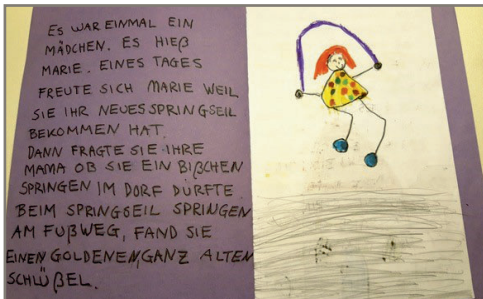 ES WAR EINMAL EIN
MÄDCHEN. ES HIEß
MARIE. EINES TAGES
FREUTE SICH MARIE WEIL
SIE IHR NEUES SPRINGSEIL
BEKOMMEN HAT.
DANN FRAGTE SIE IHRE
MAMA OB SIE EIN BIßCHEN
SPRINGEN IM DORF DÜRFTE.
BEIM SPRINGSEIL SPRINGEN
AM FUßWEG, FAND SIE
EINEN GOLDENEN, GANZ ALTEN
SCHLÜßEL.